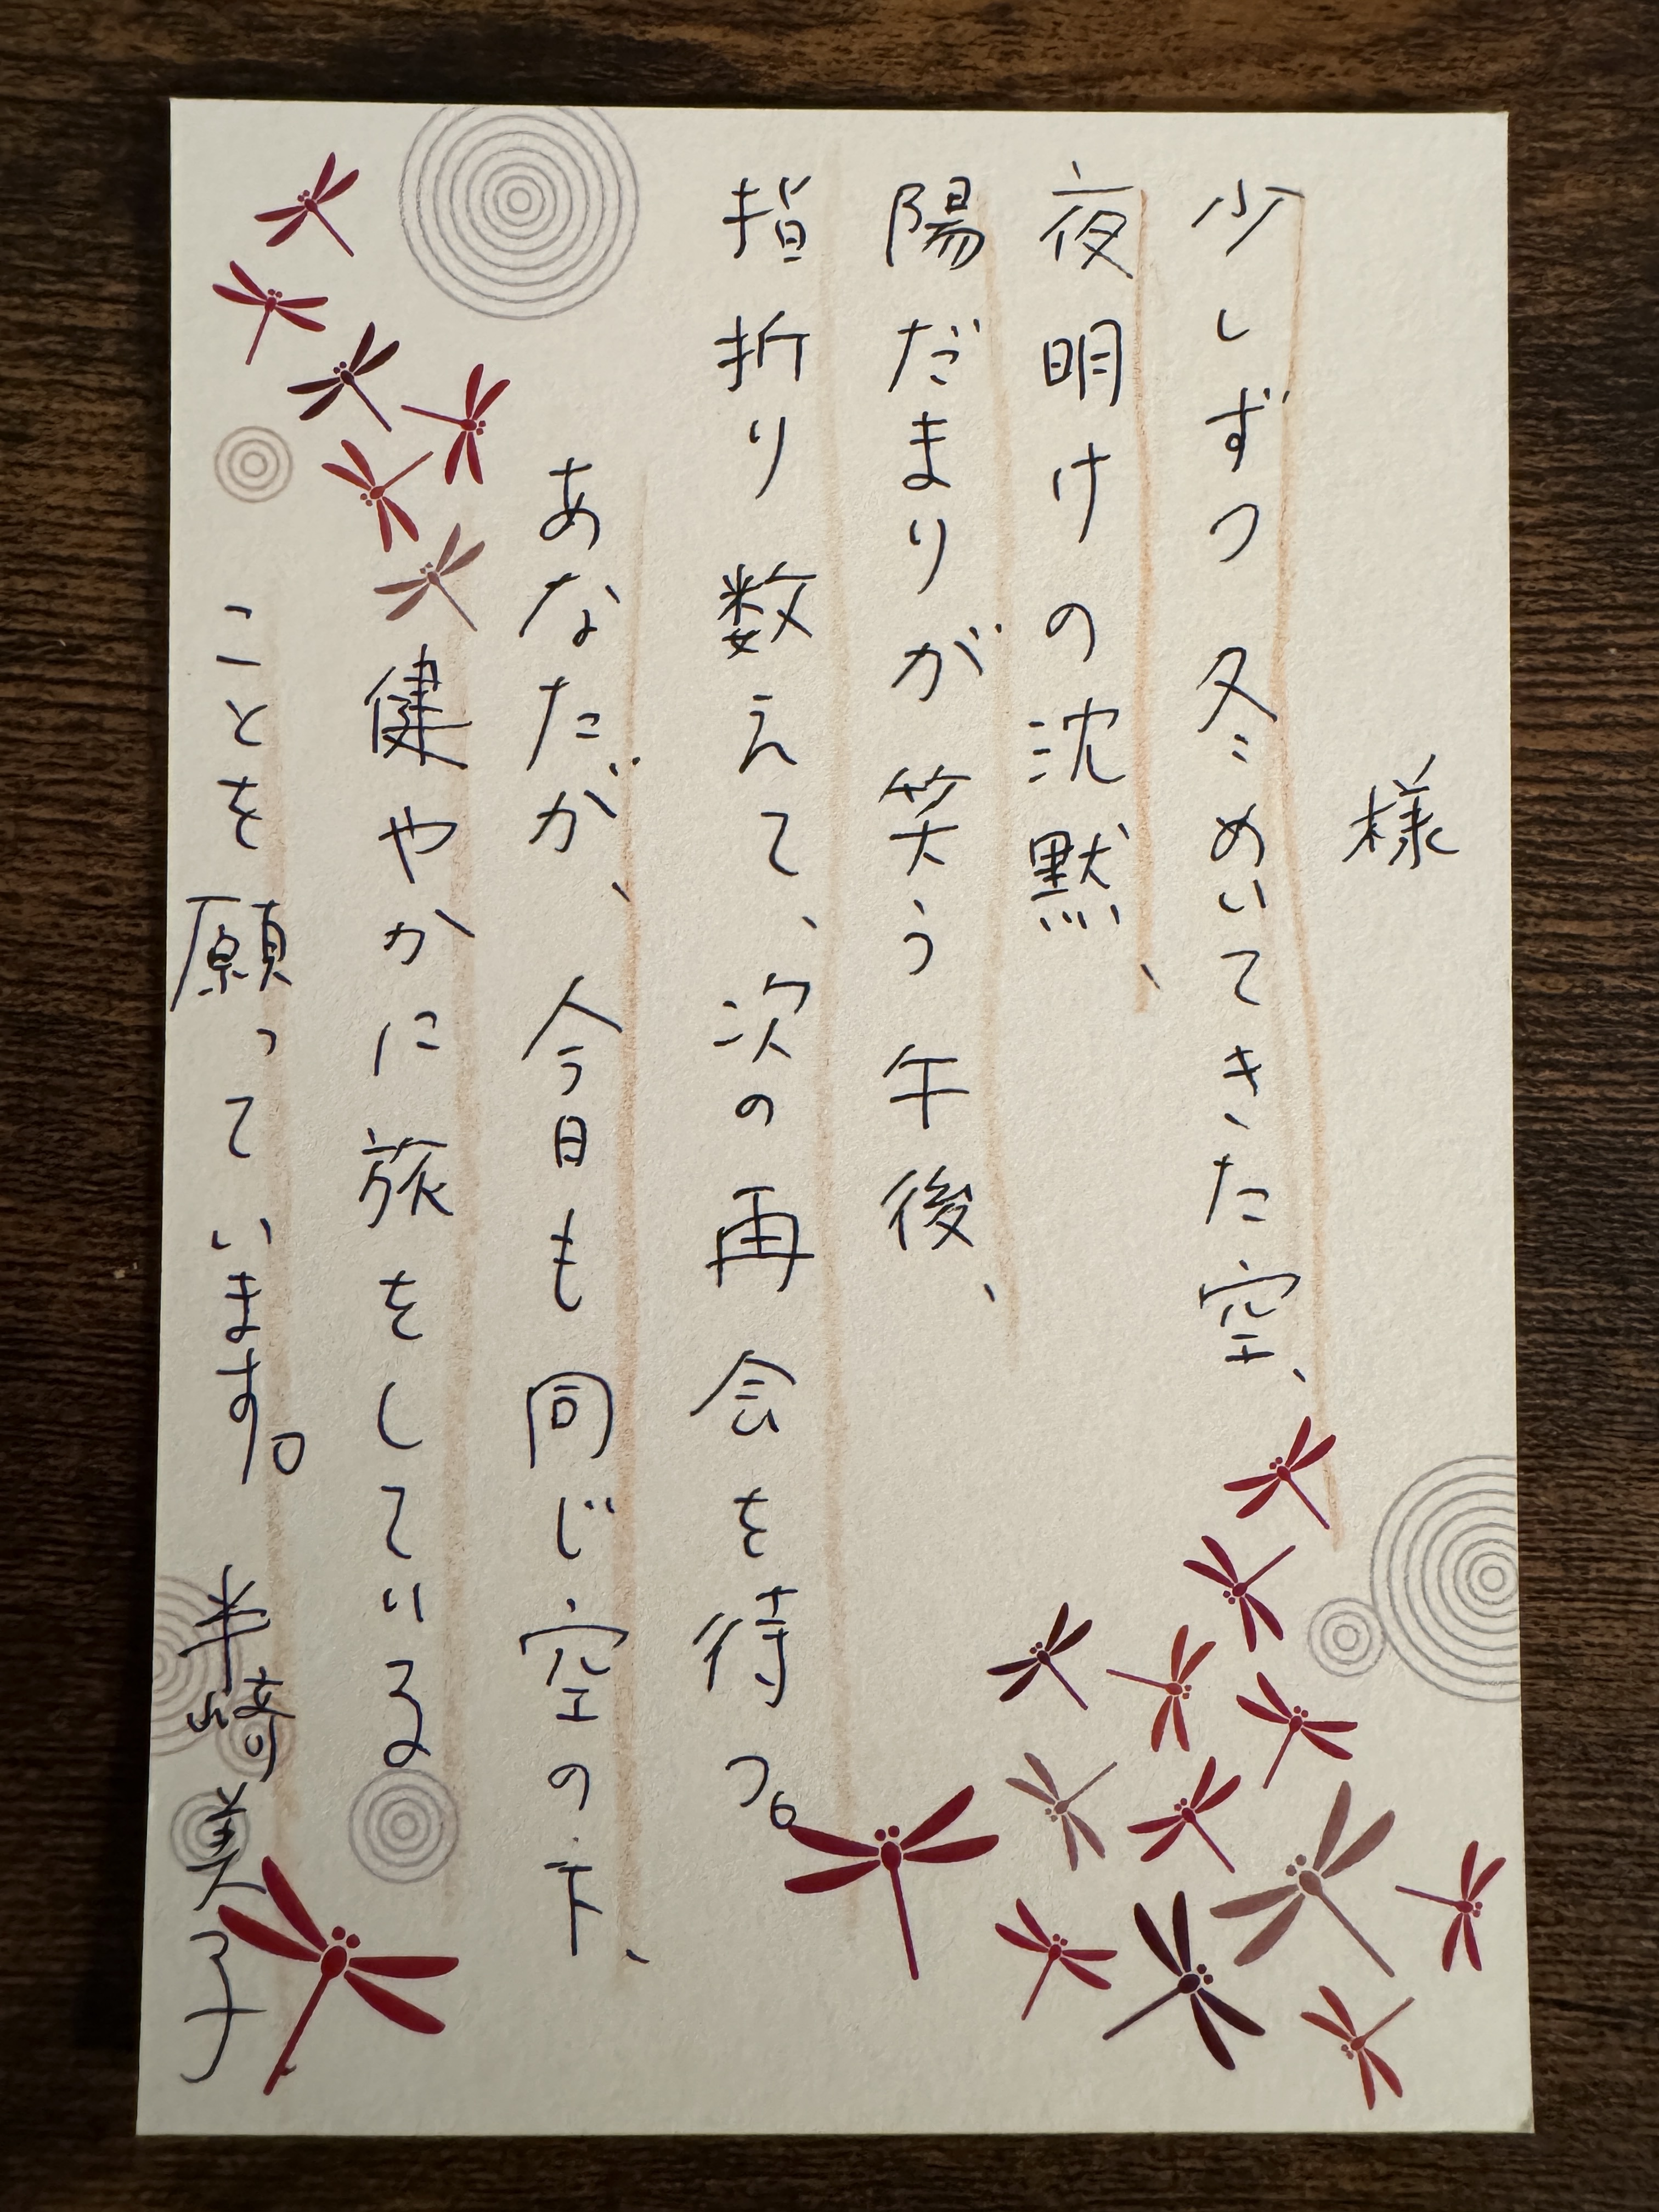 様
少しずつ 冬めいてきた空、
夜明けの沈黙、
陽だまりが笑う午後、
指折り数えて、次の再会を待つ。
あなたが、今日も同じ空の下、
健やかに旅をしている
ことを願っています。 半﨑美子